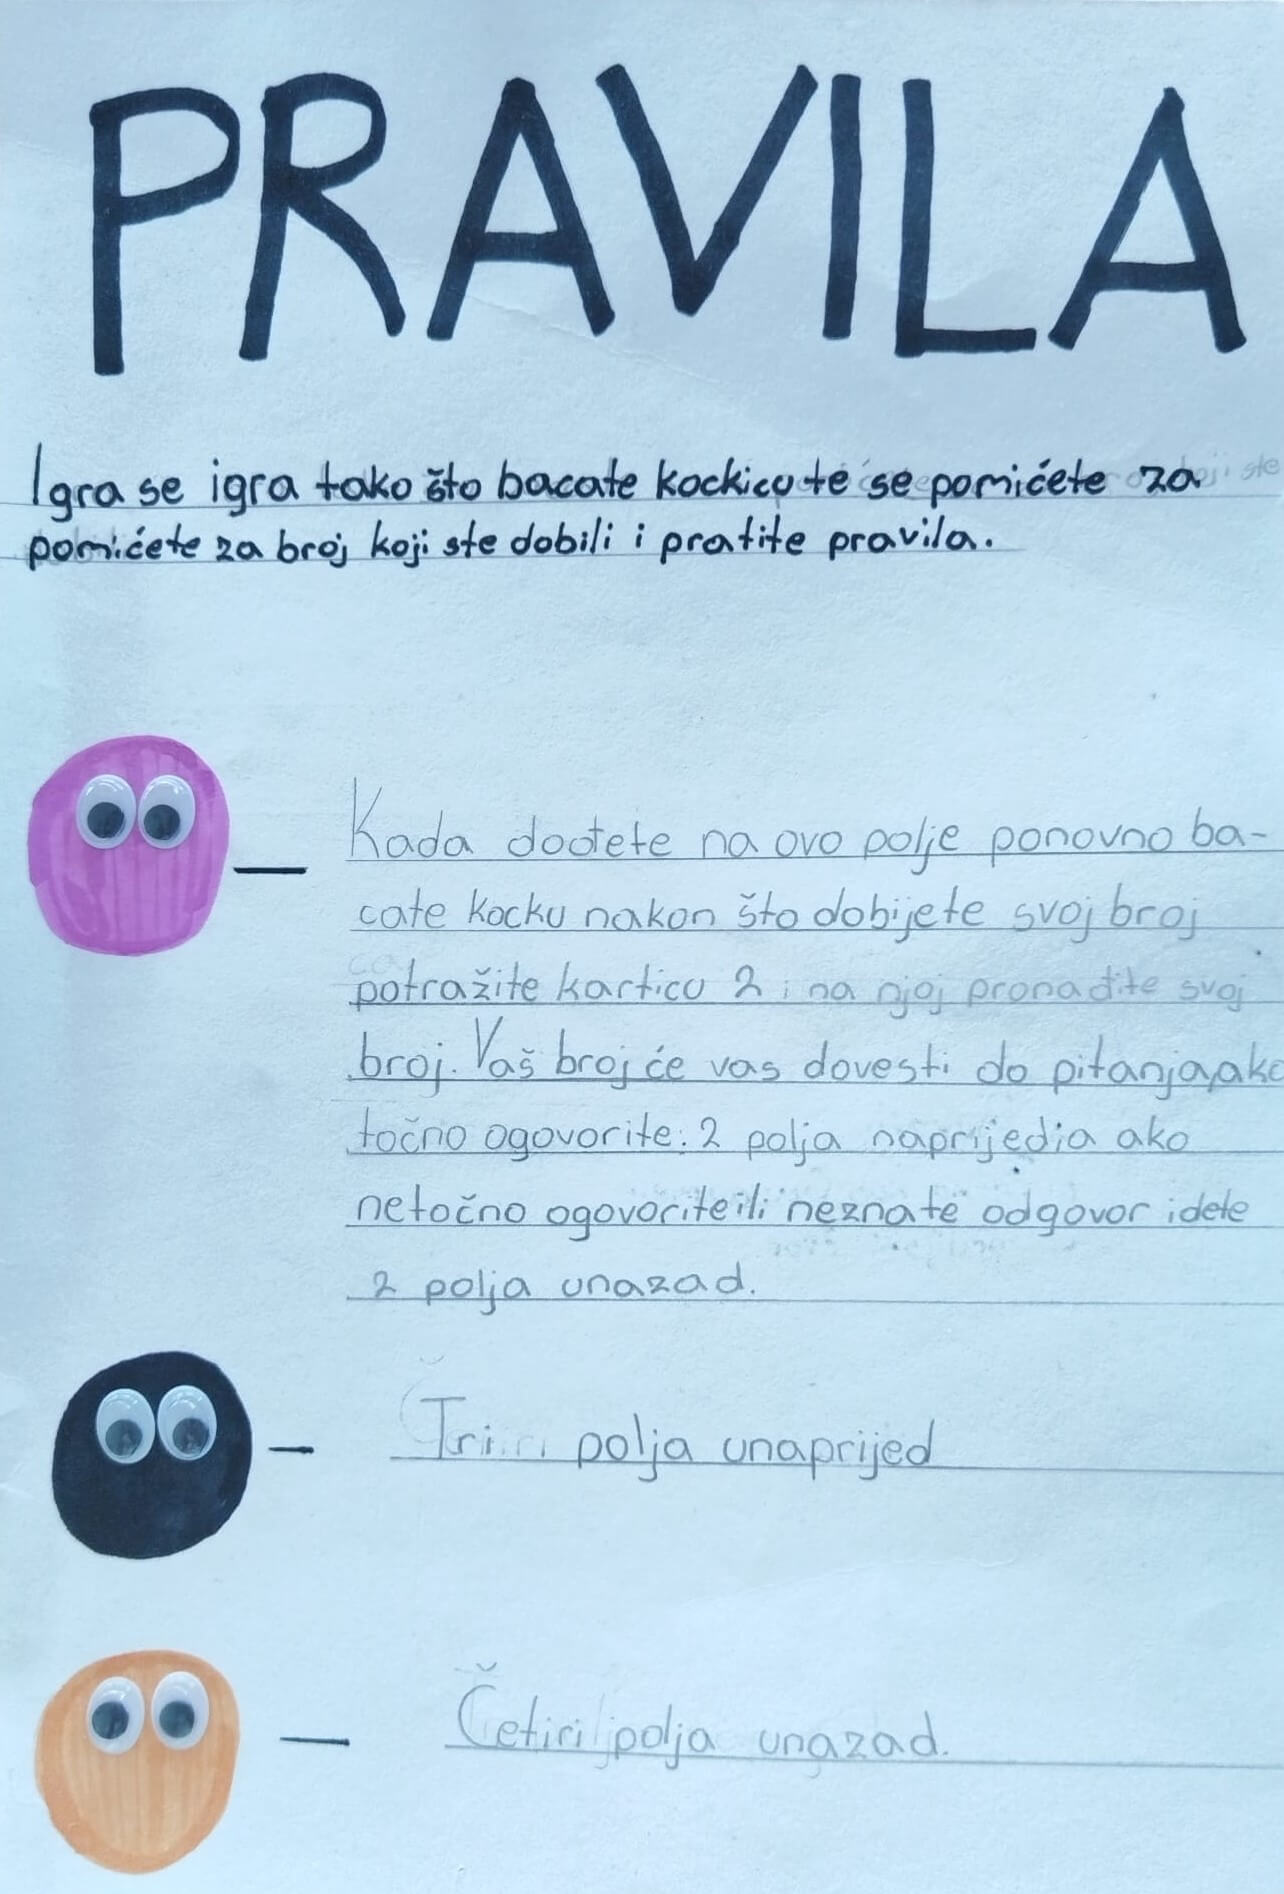 PRAVILA
Igra se igra tako što bacate kockicu te se pomićete za
pomićete za broj koji ste dobili i pratite pravila.
Kada dođete na ovo polje ponovno ba-
cate kocku nakon što dobijete svoj broj
potražite karticu 2 i na njoj pronađite svoj
broj. Vaš broj će vas dovesti do pitanja, ako
točno ogovorite: 2 polja naprijed, a ako
netočno ogovorite ili neznate odgovor idete
2 polja unazad.
Tri polja unaprijed
Četiri polja unazad.